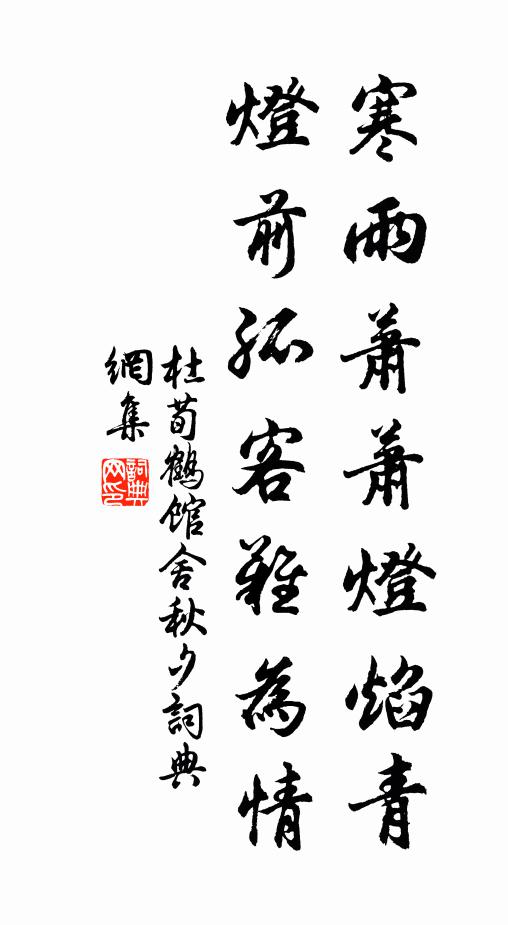 寒雨蕭蕭燈焰青
燈前孤客難為情
杜荀鶴館舍秋夕詞典
網集
詞典網印